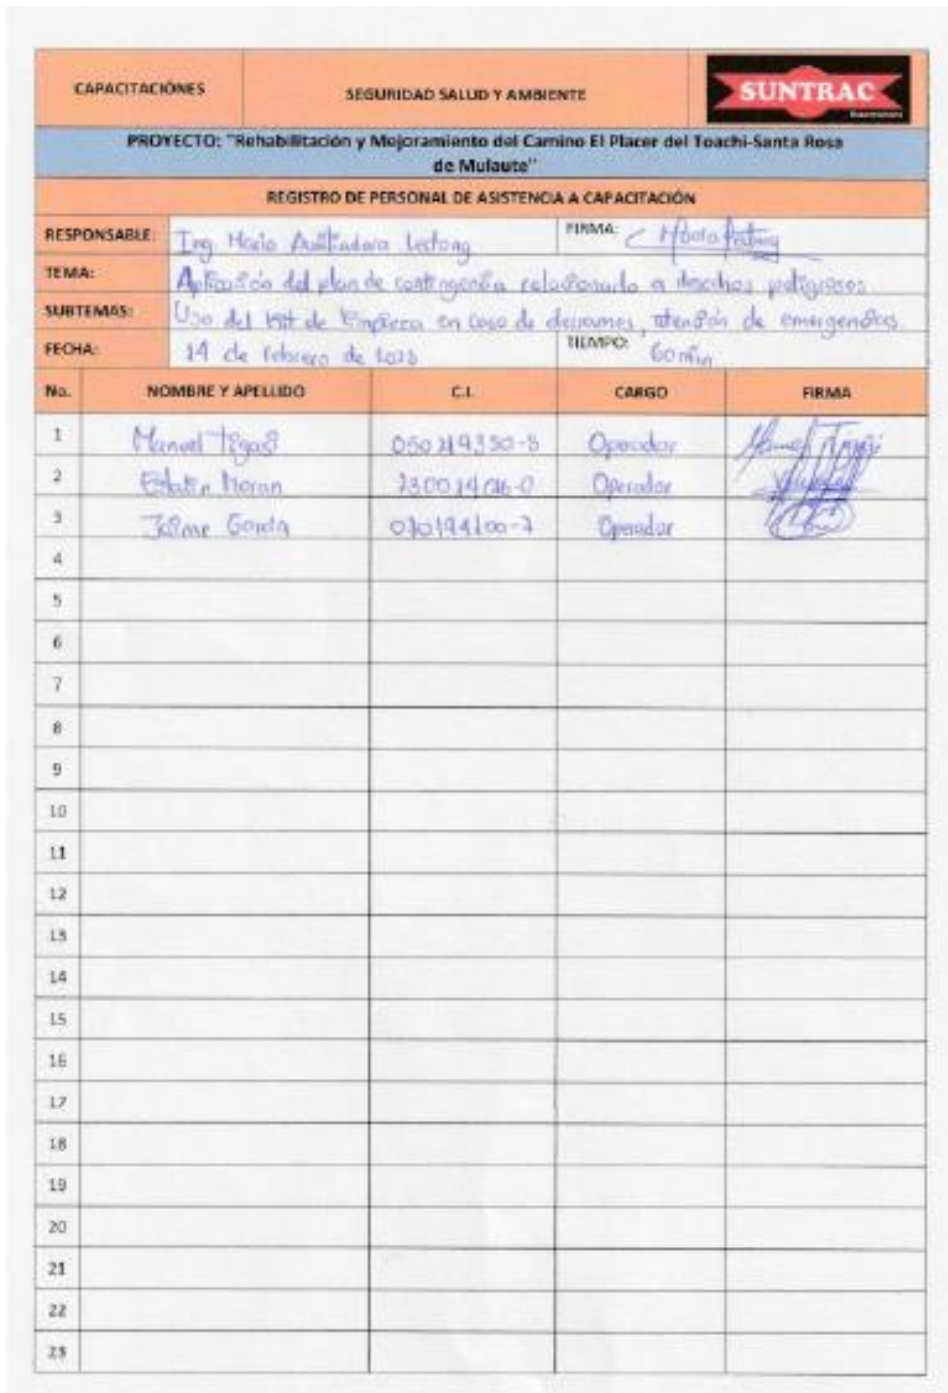 CAPACITACIÓNES
SEGURIDAD SALUD Y AMBIENTE
SUNTRAC
PROYECTO: "Rehabilitación y Mejoramiento del Camino El Placer del Toachi-Santa Rosa
de Mulaute"
REGISTRO DE PERSONAL DE ASISTENCIA A CAPACITACIÓN
RESPONSABLE: Ing. María FIRMA:
TEMA: Aplicación del plan de contingencia relacionado a desechos peligrosos
SUBTEMAS: Uso del kit de limpieza en caso de derrames, atención de emergencias
FECHA: 14 de febrero de 2023 TIEMPO: 60 min
No. NOMBRE Y APELLIDO C.I. CARGO FIRMA
1 Manuel Operador
2 Moran Operador
3 Jaime García Operador
4
5
6
7
8
9
10
11
12
13
14
15
16
17
18
19
20
21
22
23